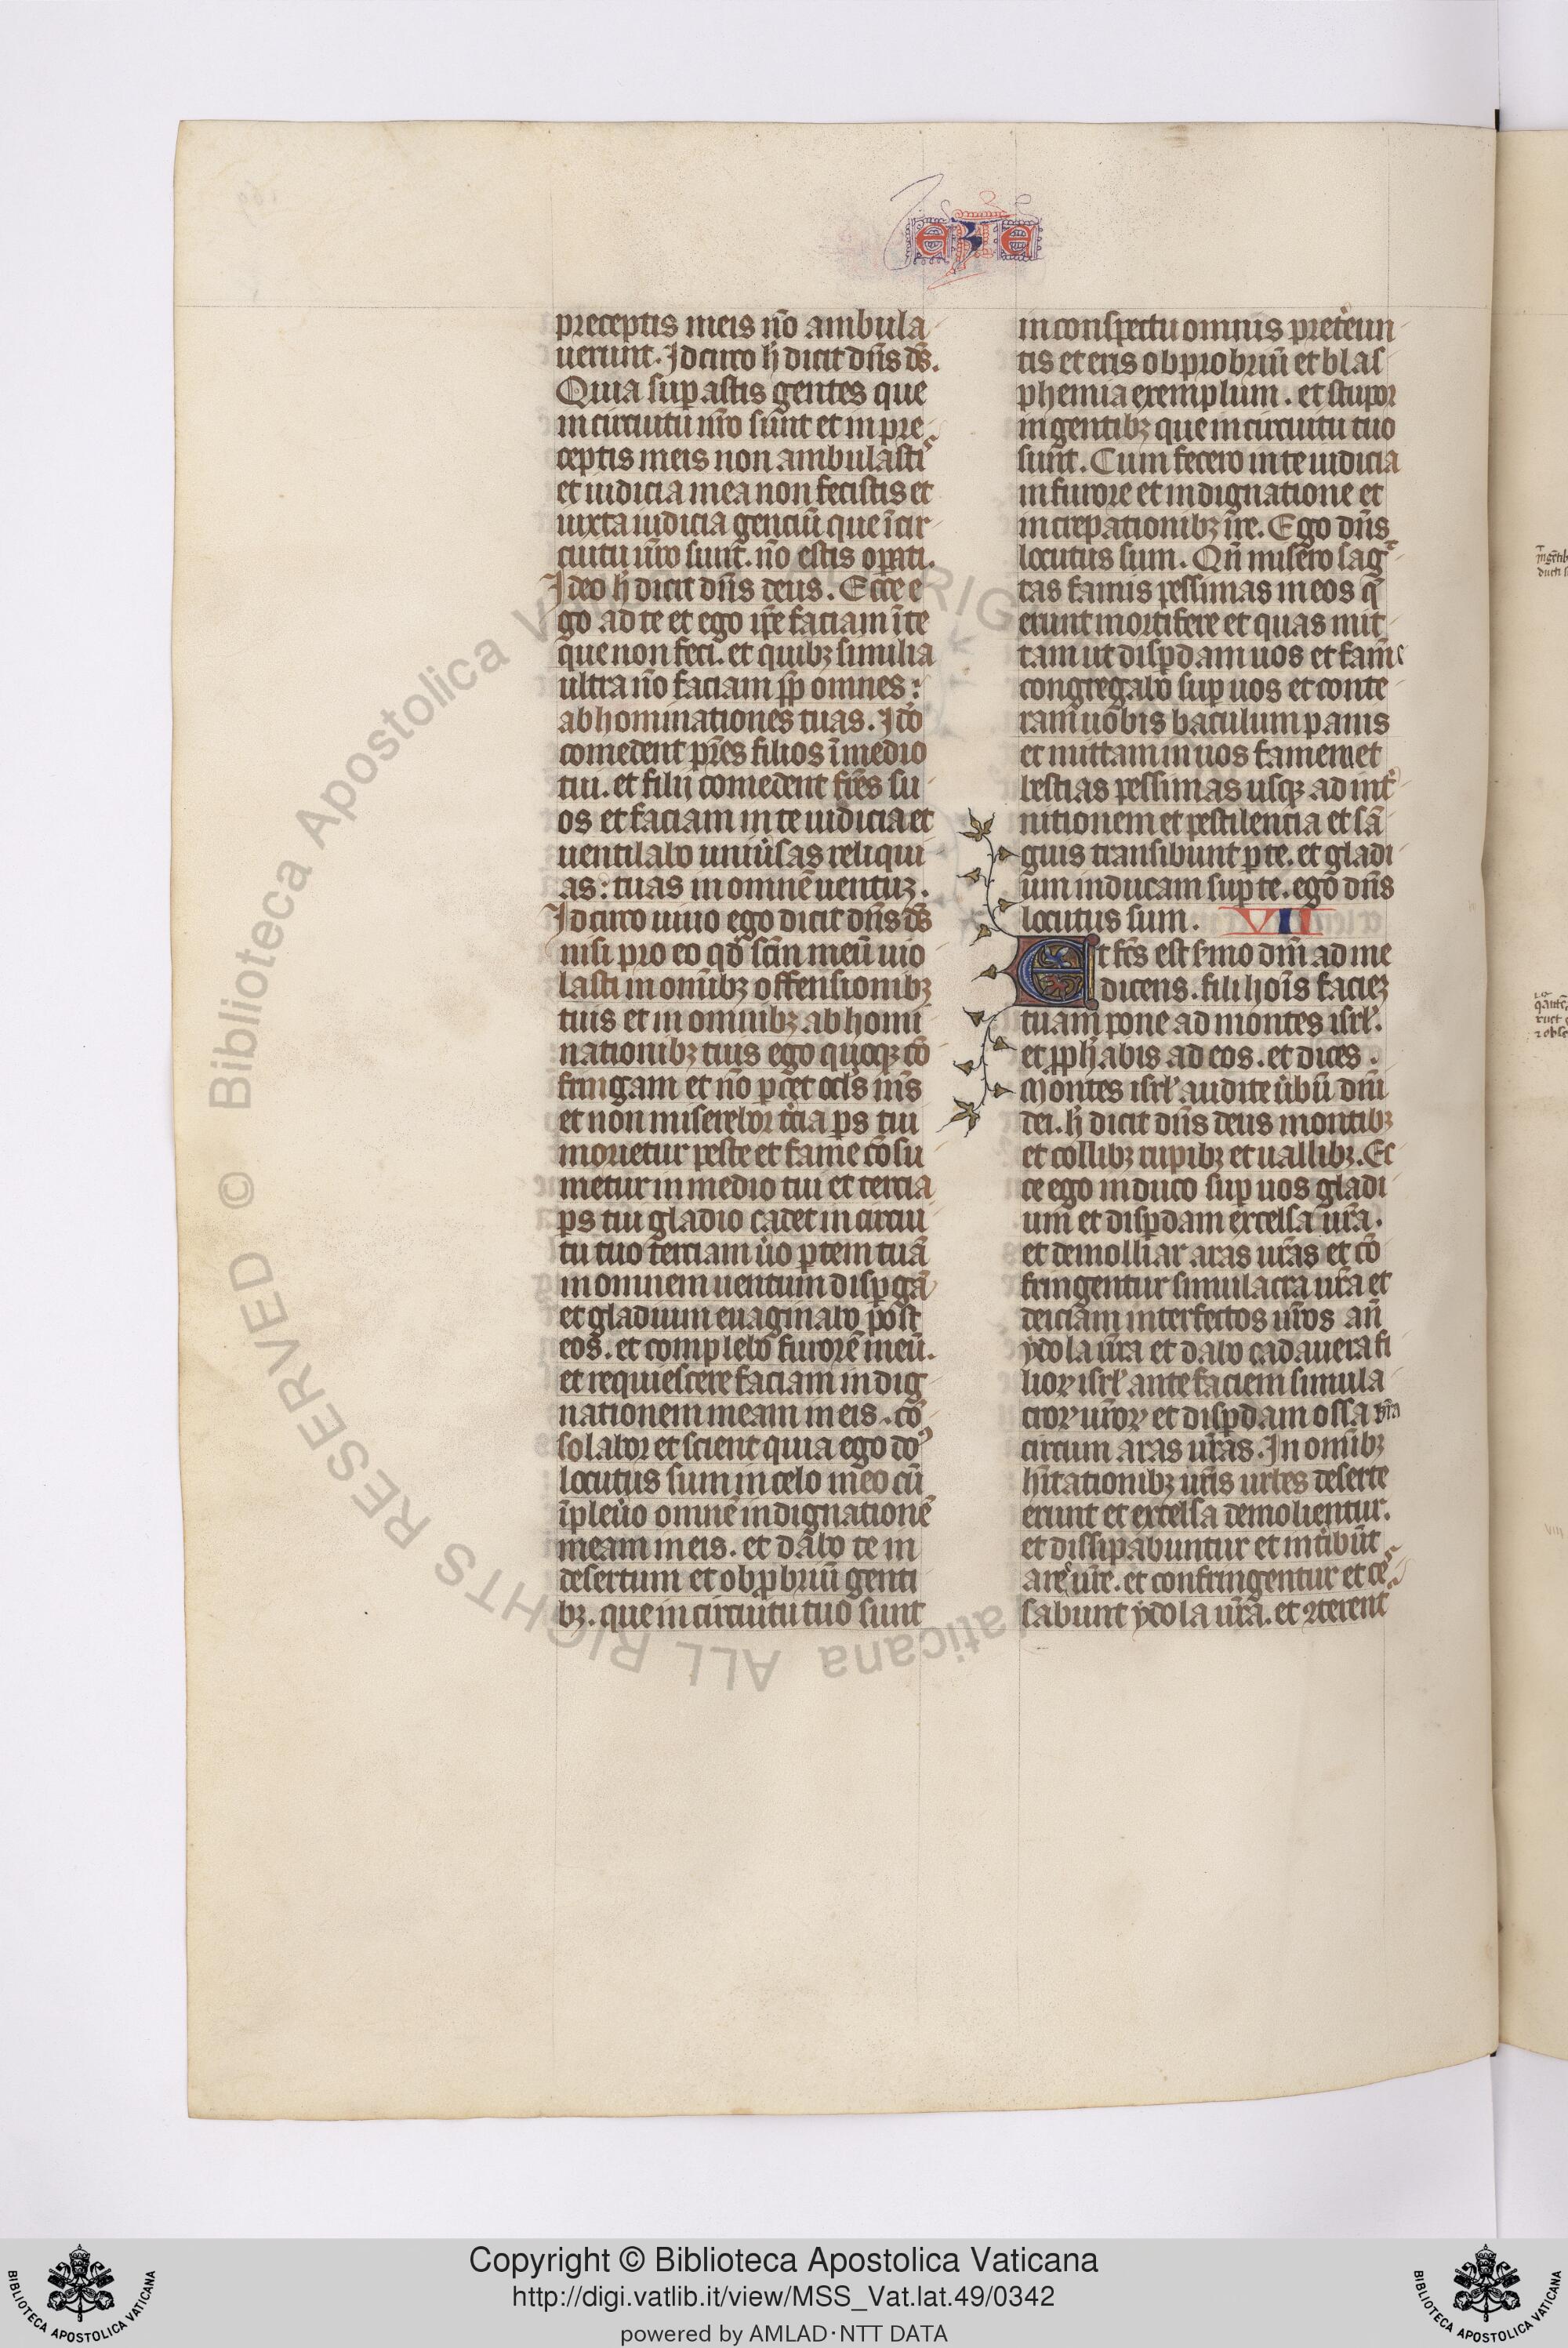 EZE
preceptis meis nō ambula
uerunt. Idcirco h̄ dicit dn̄s ds̄.
Quia suꝑastis gentes que
in circuitu ur̄o sunt et in pre
ceptis meis non ambulasti
et iudicia mea non fecistis et
iuxta iudicia genciū que ī cir
cuitu ur̄o sunt. nō estis oꝑati.
Ideo h̄ dicit dn̄s deus. Ecce e
go ad te et ego ip̄e faciam ī te
que non feci. et quibꝫ similia
ultra nō faciam ꝓp̄ omnes
abhominationes tuas. Idō
comedent pr̄es filios ī medio
tui. et filii comedent pr̄es su
os et faciam in te iudicia et
uentilabo uniu͛sas reliqui
as: tuas in omnē uentuꝫ.
Idcirco uiuo ego dicit dn̄s ds̄
nisi pro eo qd̄ scm̄ meū uio
lasti in omībꝫ offensionibꝫ
tuis et in omnibꝫ abhomi
nationibꝫ tuis ego quoqꝫ cō
fringam et nō ꝑcet ocls̄ ms̄
et non miserebor t͛cia ps tui
morietur peste et fame cōsu
metur in medio tui et tercia
ps tui gladio cadet in circui
tu tuo terciam u͛o ꝑtem tuā
in omnem uentum disꝑgā
et gladium euaginabo post
eos. et complebo furorē meū.
et requiescere faciam indig
nationem meam in eis. cō
solabor et scient quia ego do
locutus sum in celo meo cū
īpleu͛o omnē indignationē
meam in eis. et dabo te in
desertum et obꝓbriū genti
bꝫ. que in circuitu tuo sunt
in conspectu omnis pret͛eun
tis et eris obprobriū et blas
phemia exemplum. et stupor
in gentibꝫ que in circuitu tuo
sunt. Cum fecero in te iudicia
in furore et indignatione et
increpationibꝫ ire. Ego dn̄s
locutus sum. Qn̄ misero sag
tas famis pessimas in eos q̄
erunt mortifere et quas mit
tam ut disꝑdam uos et famē
congregabo suꝑ uos et conte
ram uobis baculum panis
et mittam in uos famem et
bestias pessimas usqꝫ ad int͛
nitionem et pestilencia et sā
guis transibunt ꝑ te. et gladi
um inducam suꝑ te. ego dn̄s
locutus sum. VII
Et fc̄s est s͛mo dn̄i ad me
dicens. fili hoīs facieꝫ
tuam pone ad montes isrl̄.
et ꝓph̄abis ad eos. et dices.
Montes isrl̄ audite u͛bū dn̄i
dei. h̄ dicit dn̄s deus montibꝫ
et collibꝫ rupibꝫ et uallibꝫ. Ec
ce ego induco suꝑ uos gladi
um et disꝑdam excelsa ur̄a.
et demolliar aras ur̄as et cō
fringentur simulacra ur̄a et
deiciam interfectos ur̄os an̄
ydola ur̄a et dabo cadauera fi
lioꝝ isrl̄ ante faciem simula
croꝝ ur̄oꝝ et disꝑdam ossa ur̄a
circum aras ur̄as. In omībꝫ
hītationibꝫ ur̄is urbes deserte
erunt et excelsa demolientur.
et dissipabuntur et int͛ibūt
are ur̄e. et confringentur et ce
sabunt ydola ur̄a. et ꝯterent
© Biblioteca Apostolica Vaticana ALL RIGHTS RESERVED
Copyright © Biblioteca Apostolica Vaticana
http://digi.vatlib.it/view/MSS_Vat.lat.49/0342
powered by AMLAD·NTT DATA
BIBLIOTECA APOSTOLICA VATICANA
BIBLIOTECA APOSTOLICA VATICANA